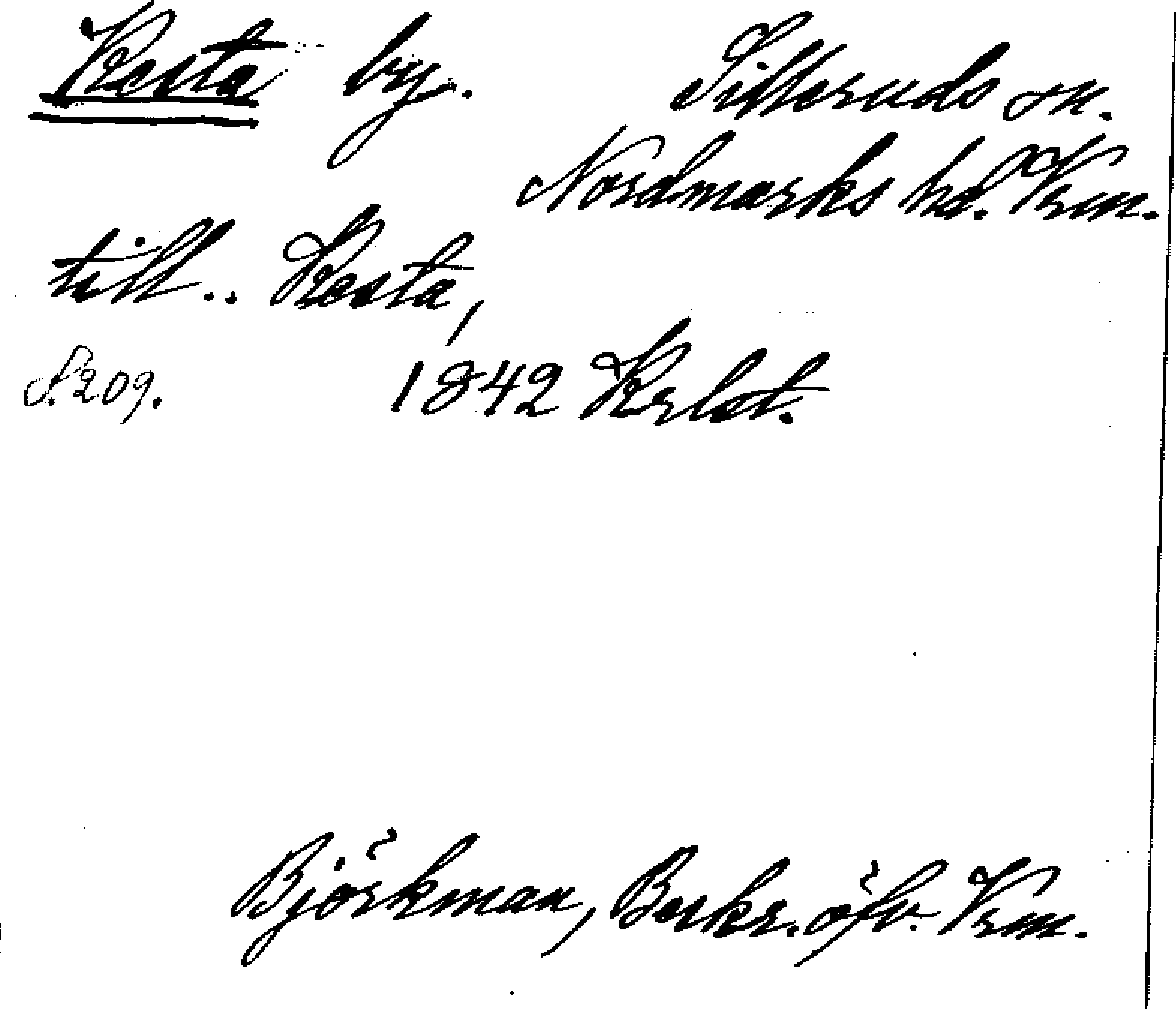 Kesta by. Silleruds sn.
Nordmarks hd. Vrm.
till.. Kesta,
S. 209. 1842 Krlst.
Björkman, Beskr. öfv. Vrm.